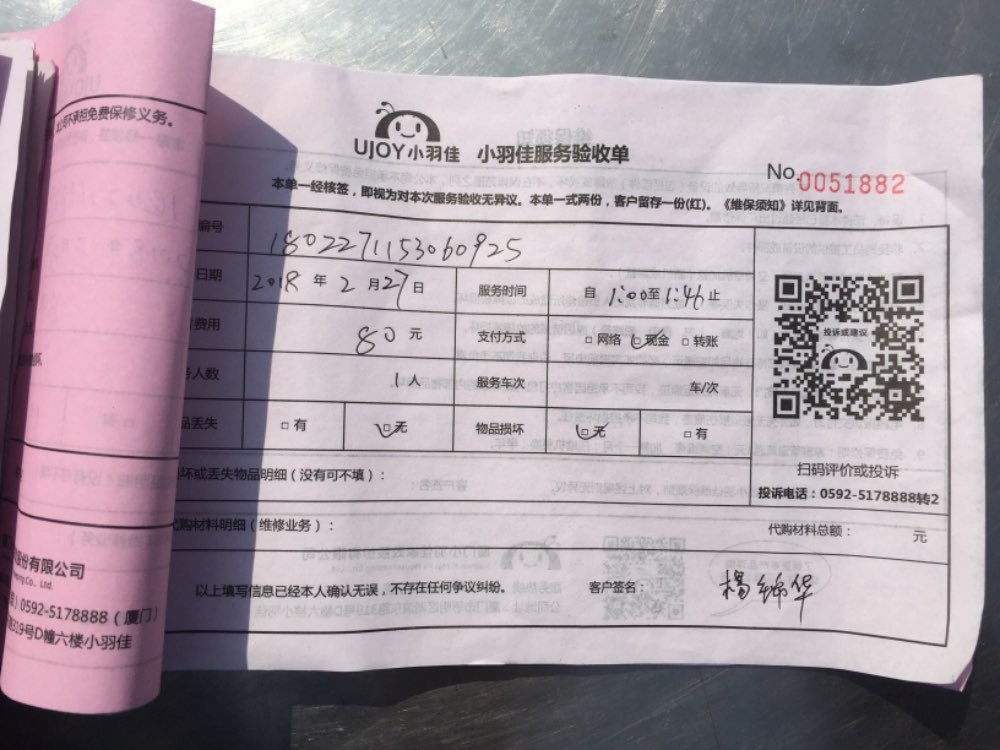 公司不承担免费保修义务。
UJOY小羽佳 小羽佳服务验收单
No.0051882
本单一经核签，即视为对本次服务验收无异议。本单一式两份，客户留存一份(红)。《维保须知》详见背面。
编号 1802271153060925
日期 2018 年 2 月 27 日 服务时间 自 1:00 至 1:46 止
费用 80 元 支付方式 □网络 □现金 □转账
投诉或建议
人数 1 人 服务车次 车/次
丢失 □有 □无 物品损坏 □无 □有
扫码评价或投诉
坏或丢失物品明细（没有可不填）：
投诉电话：0592-5178888转2
代购材料明细（维修业务）： 代购材料总额： 元
份有限公司
Co., Ltd.
以上填写信息已经本人确认无误，不存在任何争议纠纷。 客户签名： 杨锦华
0592-5178888（厦门）
319号D幢六楼小羽佳